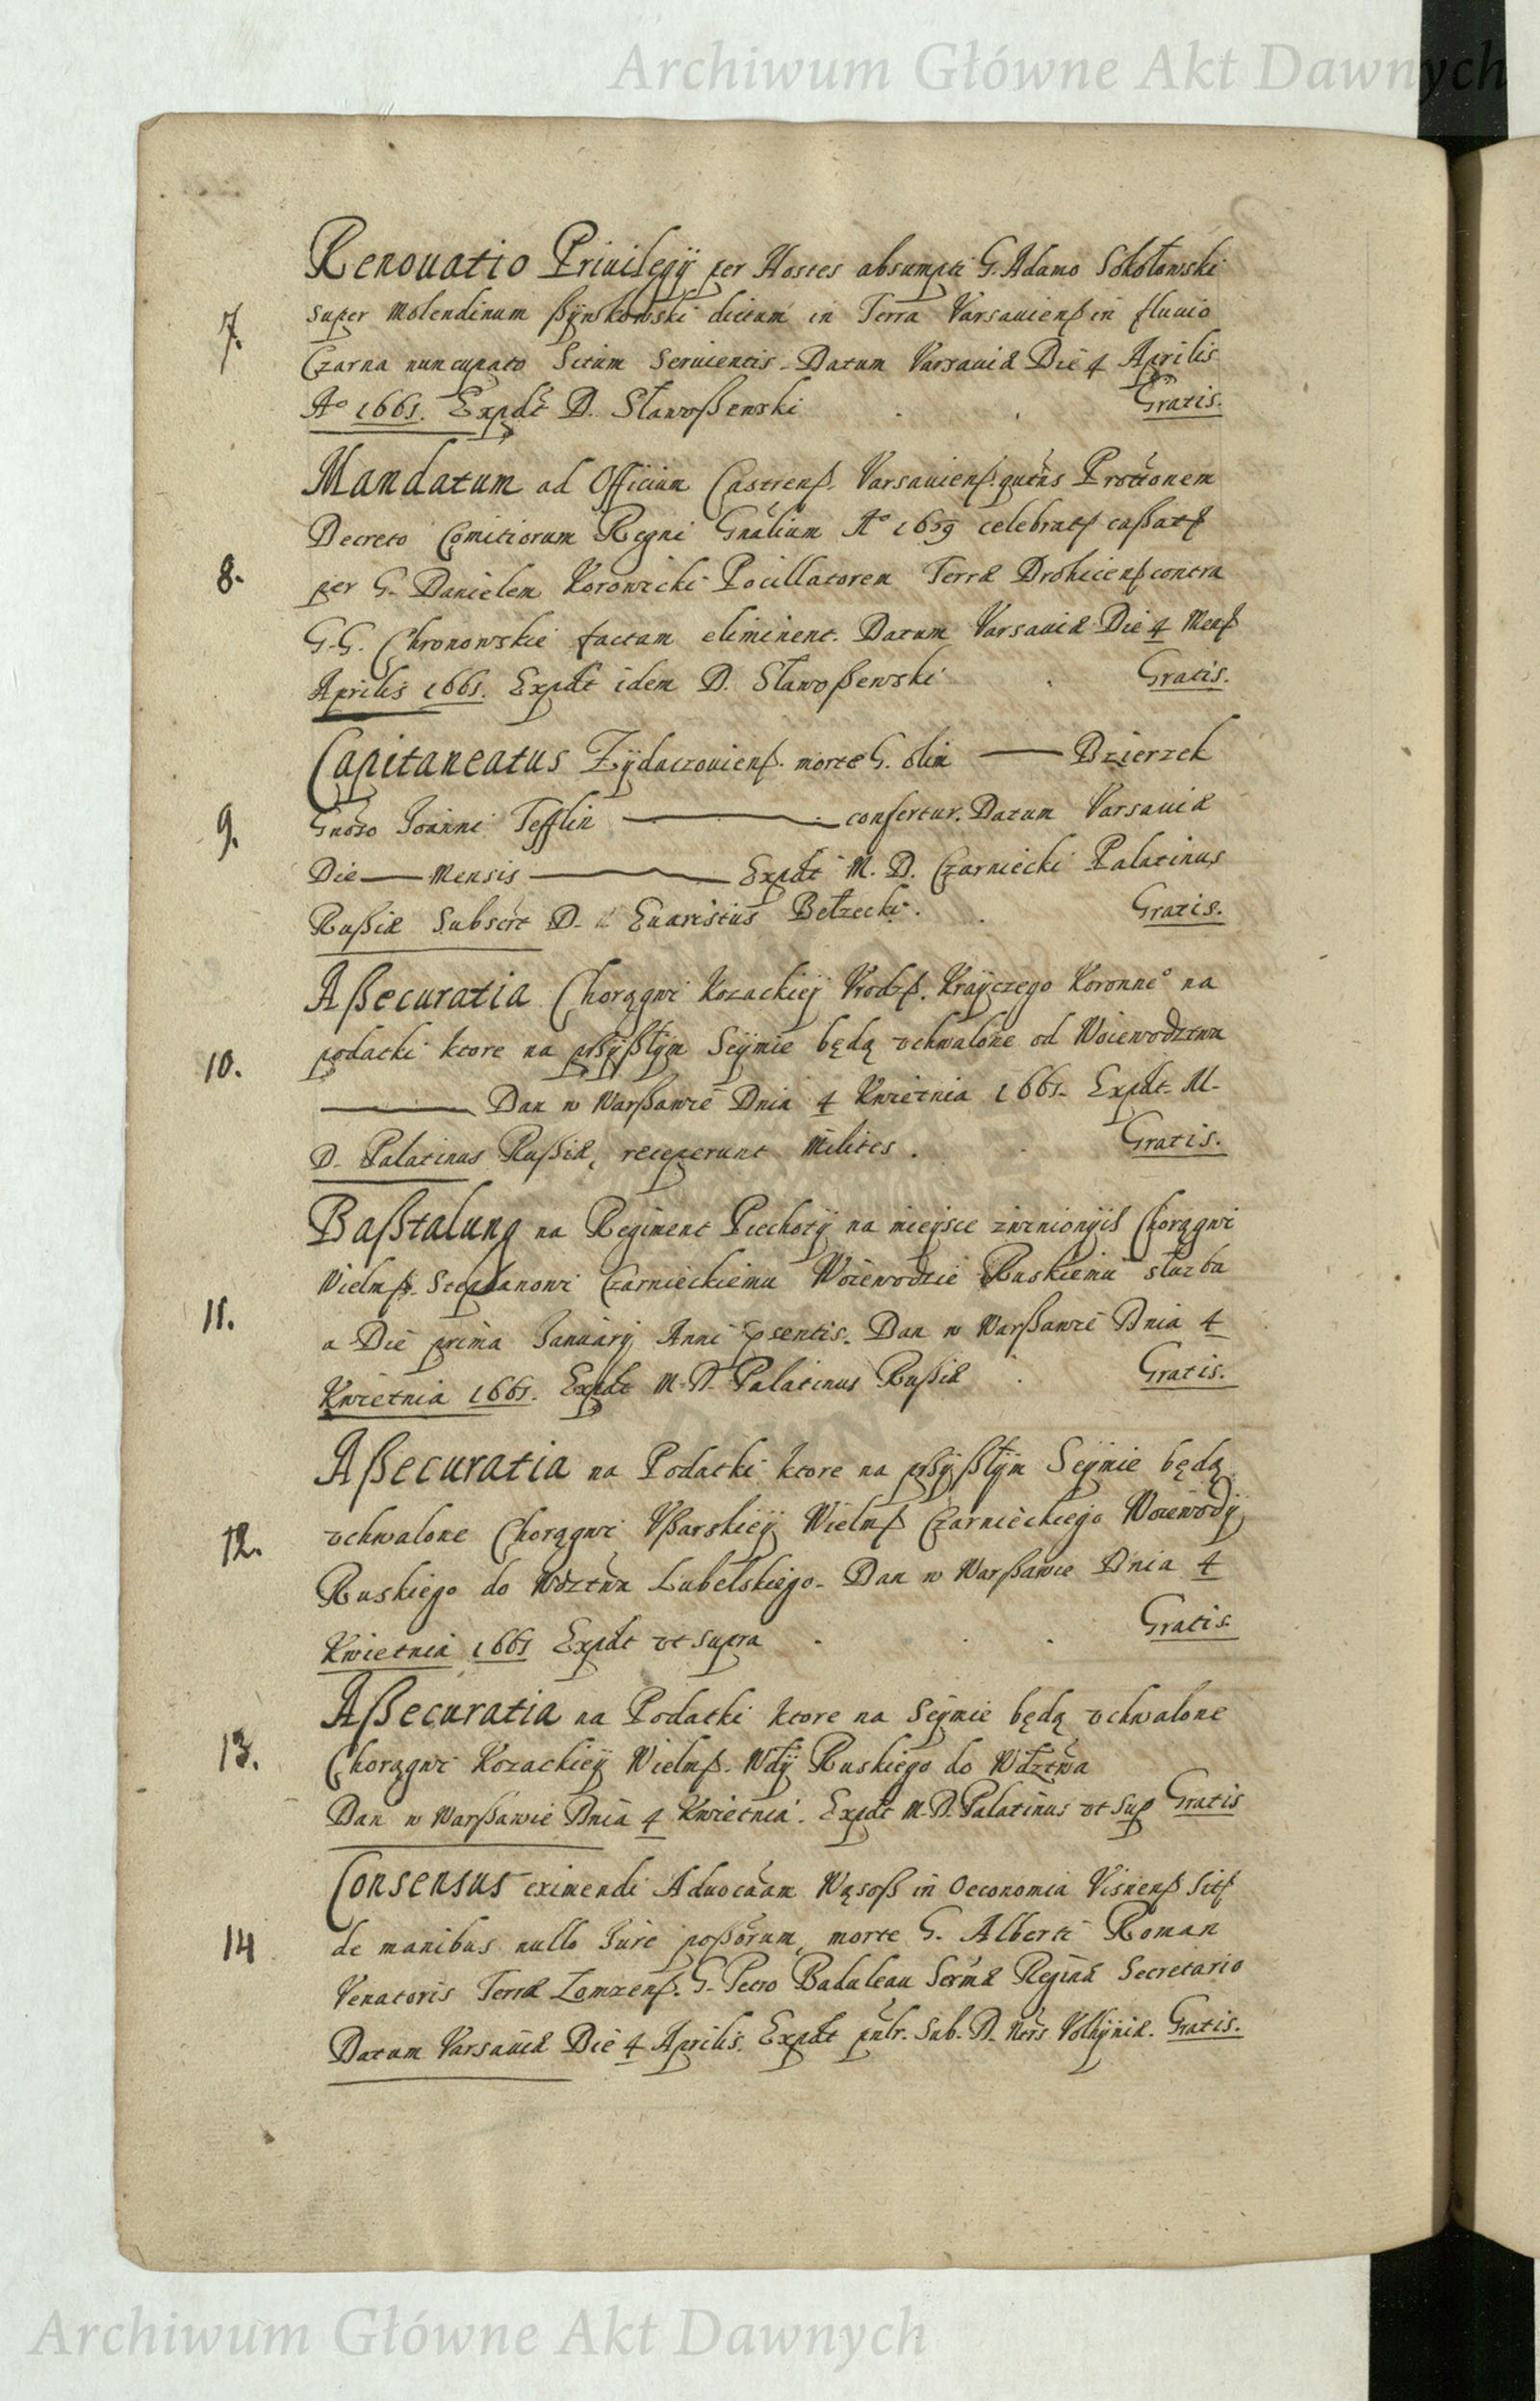 Archiwum Główne Akt Dawnych
Renouatio Priuilegÿ per Hostes absumpti G. Adamo Sokołowski
7. super Molendinum ßÿnskowski dictum in Terra Varsauienß in fluuio
Czarna nuncupato Situm Seruientis. Datum Varsauiæ Die 4 Aprilis
Aº 1661. Expdt D. Stawoßewski Gratis.
Mandatum ad Officium Castrenß. Varsauienß. qutns Protonem
Decreto Comitiorum Regni Gnalium Aº 1659 celebratß caßatß
8. per G. Danielem Korowicki Pocillatorem Terræ Drohicenß contra
G.G. Chronowskie factam eliminent. Datum Varsauiæ Die 4 Menß
Aprilis 1661. Expdt idem D. Stawoßewski Gratis.
Capitaneatus Zÿdaczouienß. morte G. olim — Dzierzek
9. Gnoso Joanni Tefflin — confertur. Datum Varsauiæ
Die — Mensis — Expdt M. D. Czarniecki Palatinus
Rußiæ Subscrt D. Euaristus Bełzecki. Gratis.
Aßecuratia Chorągwi Kozackieÿ Vrodzß. Kraÿczego Koronneº na
10. podatki ktore na prßÿßłÿm Seÿmie będą vchwalone od Woiewodztwa
— Dan w Warßawie Dnia 4 Kwietnia 1661. Expdt. M.
D. Palatinus Rußiæ, receperunt Milites. Gratis.
Baßtalung na Regiment Piechotÿ na mieÿsce zwinionÿch Chorągwi
Wielmß. Stephanowi Czarnieckiemu Woiewodzie Ruskiemu słuzba
11. a Die prima Januarÿ Anni psentis. Dan w Warßawie Dnia 4
Kwietnia 1661. Expdt M. D. Palatinus Rußiæ Gratis.
Aßecuratia na Podatki ktore na prßÿßłÿm Seÿmie będą
12. vchwalone Chorągwi Vßarskieÿ Wielmß Czarnieckiego Woiewodÿ
Ruskiego do Wdztwa Lubelskiego. Dan w Warßawie Dnia 4
Kwietnia 1661 Expdt vt supra Gratis.
Aßecuratia na Podatki ktore na Seÿmie będą vchwalone
13. Chorągwi Kozackieÿ Wielmß. Wdÿ Ruskiego do Wdztwa
Dan w Warßawie Dnia 4 Kwietnia. Expdt M. D. Palatinus vt sup Gratis
Consensus eximendi Aduocaam Wąsoß in Oeconomia Visnenß Sitß
14 de manibus nullo Jure poßorum, morte G. Alberti Roman
Venatoris Terræ Lomzenß. G. Petro Baduleau Sermæ Reginæ Secretario
Datum Varsauiæ Die 4 Aprilis. Expdt pntr. Sub. D. Ntrs Volhÿniæ. Gratis.
Archiwum Główne Akt Dawnych